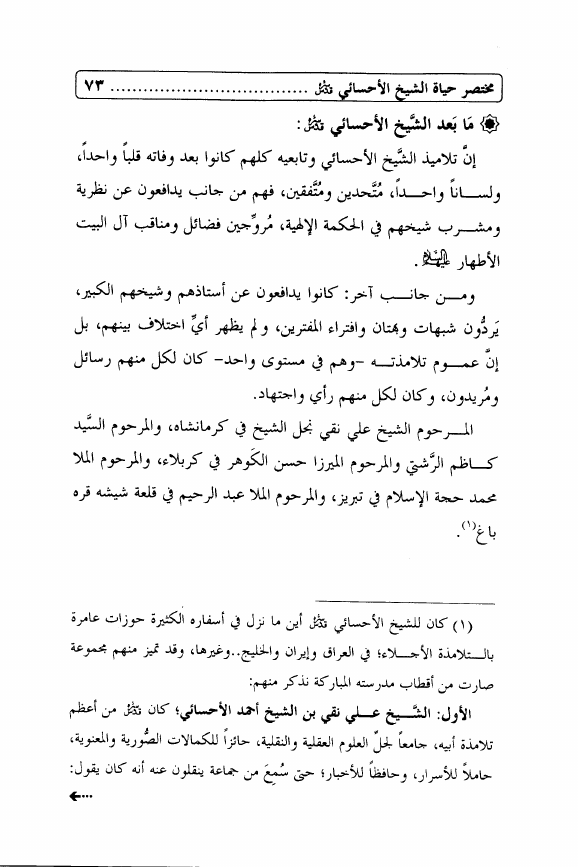 مختصر حياة الشيخ الأحسائي قدس سره .................................... ٧٣
ما بَعد الشَّيخ الأحسائي قدس سره:
إنَّ تلاميذ الشَّيخ الأحسائي وتابعيه كلهم كانوا بعد وفاته قلباً واحداً،
ولســـاناً واحـــداً، مُتَّحدين ومُتَّفقين، فهم من جانب يدافعون عن نظرية
ومشـــرب شيخهم في الحكمة الإلهية، مُروِّجين فضائل ومناقب آل البيت
الأطهار عليهم السلام.
ومـــن جانـــب آخر: كانوا يدافعون عن أستاذهم وشيخهم الكبير،
يَردُّون شبهات وبهتان وافتراء المفترين، ولم يظهر أيِّ اختلاف بينهم، بل
إنَّ عمـــوم تلامذتـــه -وهم في مستوى واحد- كان لكل منهم رسائل
ومُريدون، وكان لكل منهم رأي واجتهاد.
المـــرحوم الشيخ علي نقي نجل الشيخ في كرمانشاه، والمرحوم السَّيد
كـــاظم الرَّشتي والمرحوم الميرزا حسن الكَوهر في كربلاء، والمرحوم الملا
محمد حجة الإسلام في تبريز، والمرحوم الملا عبد الرحيم في قلعة شيشه قره
باغ(١).
(١) كان للشيخ الأحسائي قدس سره أين ما نزل في أسفاره الكثيرة حوزات عامرة
بالـــتلامذة الأجـــلاء؛ في العراق وإيران والخليج..وغيرها، وقد تميز منهم مجموعة
صارت من أقطاب مدرسته المباركة نذكر منهم:
الأول: الشَّـــيخ عـــلي نقي بن الشيخ أحمد الأحسائي؛ كان قدس سره من أعظم
تلامذة أبيه، جامعاً لجلِّ العلوم العقلية والنقلية، حائزاً للكمالات الصُّورية والمعنوية،
حاملاً للأسرار، وحافظاً للأخبار؛ حتى سُمِعَ من جماعة ينقلون عنه أنه كان يقول:
...←